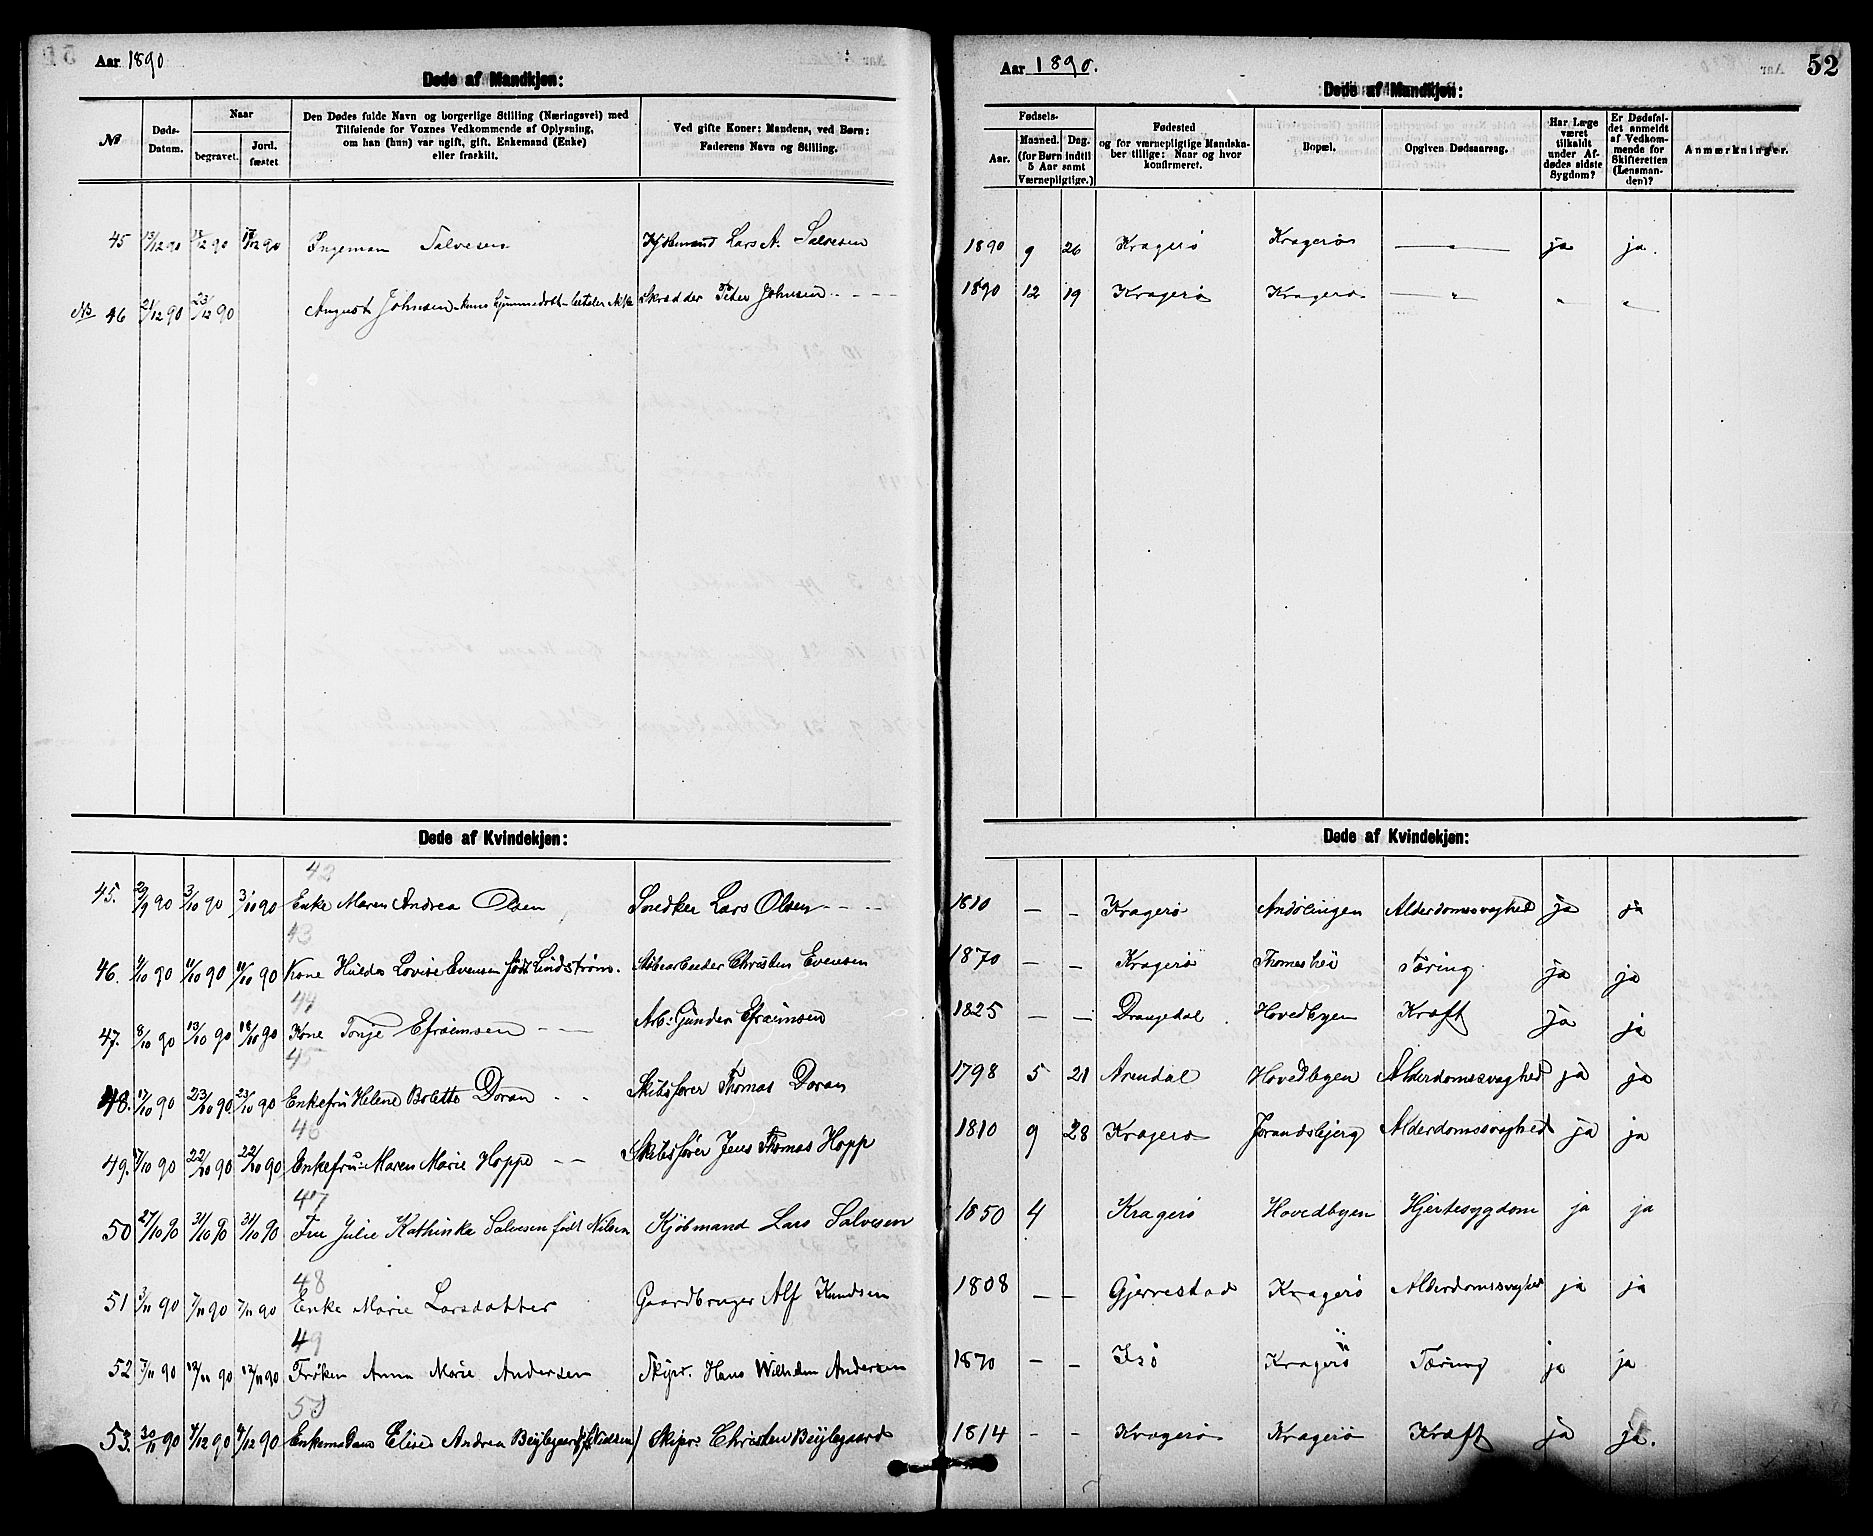 Aar 1890
Døde af Mandkjøn:
№
Døds-
Datum.
Naar
begravet.
Jord.
fæstet
Den Dødes fulde Navn og borgerlige Stilling (Næringsvei) med
Tilføiende for Voxnes Vedkommende af Oplysning,
om han (hun) var ugift, gift, Enkemand (Enke)
eller fraskilt.
Ved gifte Koner: Mandens, ved Børn:
Faderens Navn og Stilling.
45 13/12 90 18/12 90 18/12 90 Ingeman Salvesen Kjøbmand Lars A. Salvesen
No 46 21/12 90 23/12 90 August Johnsen Skrædder Peder Johnsen
Døde af Kvindekjøn:
42
45. 29/9 90 3/10 90 3/10 90 Enke Maren Andrea Olsen Snedker Lars Olsen
43
46. 4/10 90 11/10 90 11/10 90 Kone Hulda Lovise Evensen født Lindstrøm. Christen Evensen
44
47. 8/10 90 13/10 90 18/10 90 Kone Tonje Efraimsen Arb: Gunder Efraimsen
45
48. 17/10 90 23/10 90 23/10 90 Enkefru Helene Bolette Doran Skibsfører Thomas Doran
46
49. 17/10 90 22/10 90 22/10 90 Enkefru: Maren Marie Hoppe Skibsfører Jens Thomas Hopp
47
50 27/10 90 31/10 90 31/10 90 Fru Julie Kathinka Salvesen født Nilsen Kjøbmand Lars Salvesen
48
51 3/11 90 7/11 90 7/11 90 Enke Marie Larsdatter Gaardbruger Alf Knudsen
49
52 7/11 90 12/11 90 12/11 90 Frøken Anna Marie Andersen Skipr. Hans Wilhelm Andersen
50
53. 30/11 90 4/12 90 4/12 90 Enkemadam Elise Andrea Beylegaard (f. Nielsen) Skipr: Christen Beylegaard
Aar 1890.
52
Døde af Mandkjøn:
Fødsels-
Aar.
Maaned.
Dag.
(for Børn indtil
5 Aar samt
Værnepligtige.)
Fødested
og for værnepligtige Mandska-
ber tillige: Naar og hvor
konfirmeret.
Bopæl.
Opgiven Dødsaarsag.
Har Læge
været
tilkaldt
under Af-
dødes sidste
Sygdom?
Er Dødsfal-
det anmeldt
af Vedkom-
mende for
Skifteretten
(Lensman-
den)?
Anmærkninger.
1890 9 26 Kragerø Kragerø — " — ja ja.
1890 12 19 Kragerø Kragerø — " — " "
Døde af Kvindekjøn:
1810 — - Kragerø Andølingen Alderdomssvaghed ja ja
1870 — - Kragerø Thomeshei Tæring ja ja
1825 — - Drangedal Hovedbyen Kræft ja ja
1798 5 21 Arendal Hovedbyen Alderdomssvaghed ja ja
1810 9 28 Kragerø Jorandsbjerg Alderdomssvaghed ja ja
1850 4 Kragerø Hovedbyen Hjertesygdom ja ja
1808 — - Gjerrestad Kragerø Alderdomssvaghed ja ja
1870 - - Kragerø Tæring ja ja
1814 - - Kragerø Kragerø Kræft ja ja.